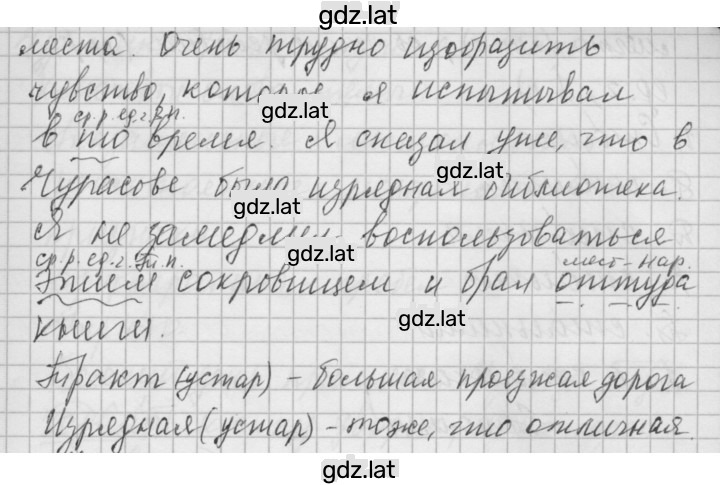 gdz.lat
места. Очень трудно изобразить
чувство, которое я испытывал
gdz.lat
ср.р. ед.ч. В.п.
в то время. Я сказал уже, что в
gdz.lat
Чурасове была изрядная библиотека.
gdz.lat
Я не замедлил воспользоваться
gdz.lat
ср.р. ед.ч. Тв.п. мест-нар.
Этим сокровищем и брал оттуда
gdz.lat
книги.
Тракт (устар) - большая проезжая дорога
Изрядная (устар) - тоже, что отличная.
gdz.lat